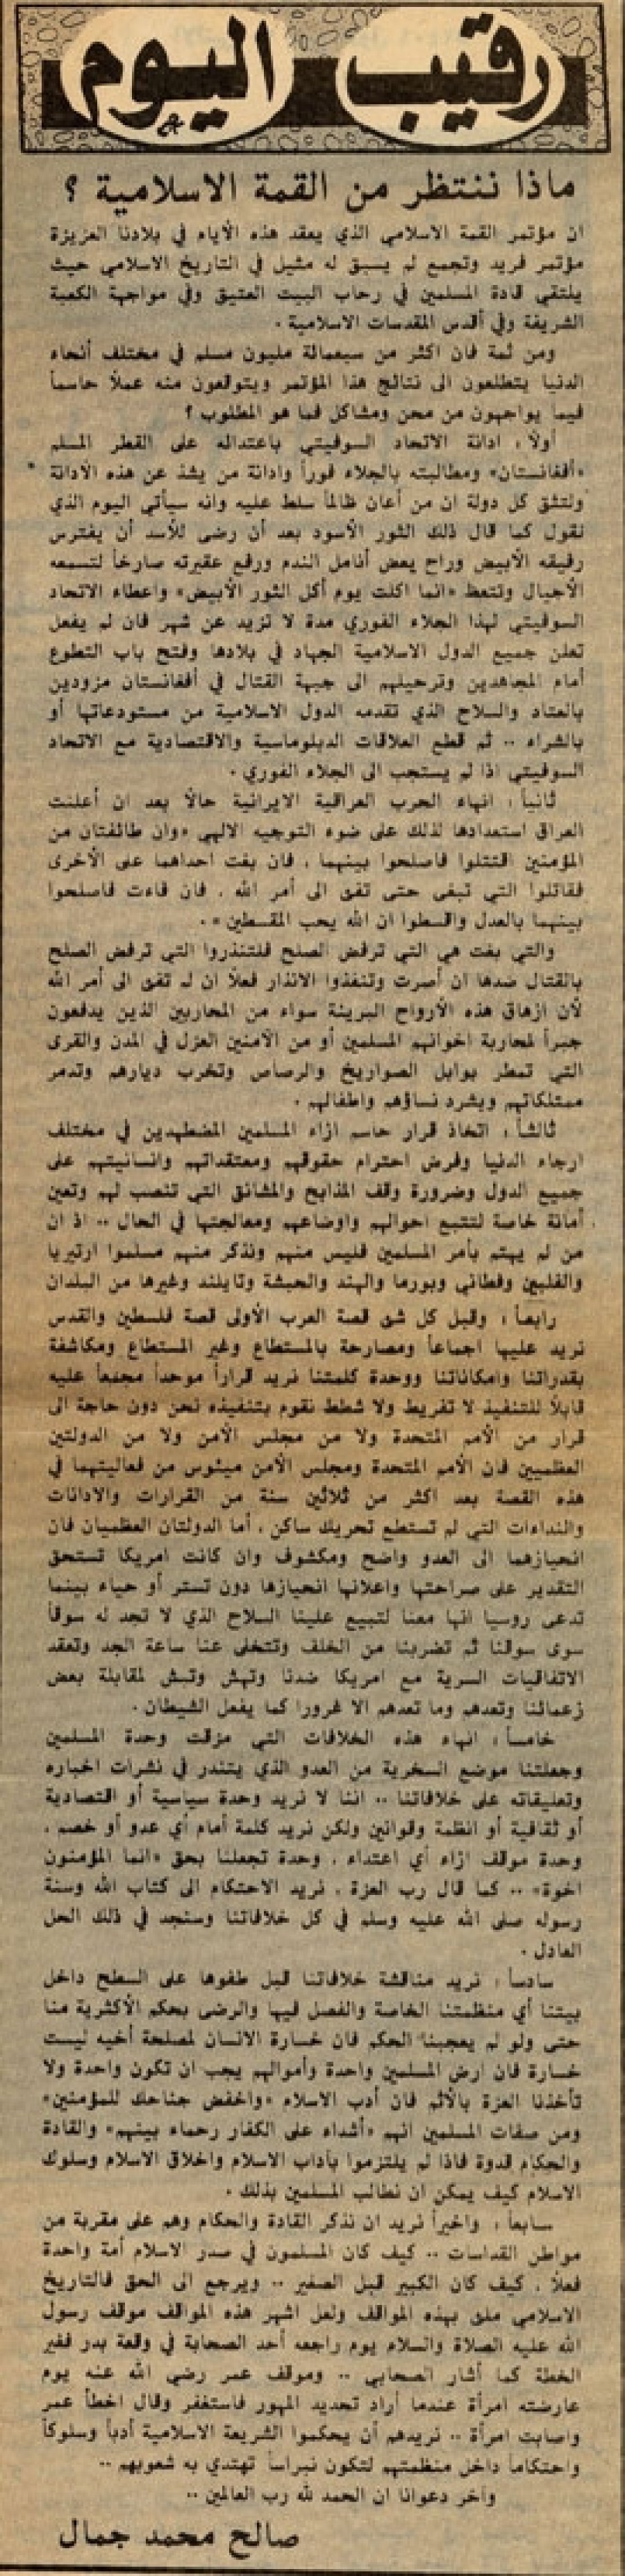 رقيب اليوم
ماذا ننتظر من القمة الاسلامية ؟
ان مؤتمر القمة الاسلامي الذي يعقد هذه الأيام في بلادنا العزيزة
مؤتمر فريد وتجمع لم يسبق له مثيل في التاريخ الاسلامي حيث
يلتقي قادة المسلمين في رحاب البيت العتيق وفي مواجهة الكعبة
الشريفة وفي أقدس المقدسات الاسلامية .
ومن ثمة فان اكثر من سبعمائة مليون مسلم في مختلف أنحاء
الدنيا يتطلعون الى نتائج هذا المؤتمر ويتوقعون منه عملاً حاسماً
فيما يواجهون من محن ومشاكل فما هو المطلوب ؟
أولاً : ادانة الاتحاد السوفيتي باعتدائه على القطر المسلم
«أفغانستان» ومطالبته بالجلاء فوراً وادانة من يشذ عن هذه الادانة
ولتثق كل دولة ان من أعان ظالماً سلط عليه وانه سيأتي اليوم الذي
نقول كما قال ذلك الثور الأسود بعد أن رضى للأسد أن يفترس
رفيقه الأبيض وراح يعض أنامل الندم ورفع عقيرته صارخاً لتسمعه
الأجيال وتتعظ «انما اكلت يوم أكل الثور الأبيض» واعطاء الاتحاد
السوفيتي لهذا الجلاء الفوري مدة لا تزيد عن شهر فان لم يفعل
تعلن جميع الدول الاسلامية الجهاد في بلادها وفتح باب التطوع
أمام المجاهدين وترحيلهم الى جبهة القتال في أفغانستان مزودين
بالعتاد والسلاح الذي تقدمه الدول الاسلامية من مستودعاتها أو
بالشراء .. ثم قطع العلاقات الدبلوماسية والاقتصادية مع الاتحاد
السوفيتي اذا لم يستجب الى الجلاء الفوري .
ثانياً : انهاء الحرب العراقية الايرانية حالاً بعد ان أعلنت
العراق استعدادها لذلك على ضوء التوجيه الالهي «وان طائفتان من
المؤمنين اقتتلوا فاصلحوا بينهما ، فان بغت احداهما على الأخرى
فقاتلوا التي تبغى حتى تفئ الى أمر الله ، فان فاءت فاصلحوا
بينهما بالعدل واقسطوا ان الله يحب المقسطين» .
والتي بغت هي التي ترفض الصلح فلتنذروا التي ترفض الصلح
بالقتال ضدها ان أصرت وتنفذوا الانذار فعلاً ان لم تفئ الى أمر الله
لأن ازهاق هذه الأرواح البريئة سواء من المحاربين الذين يدفعون
جبراً لمحاربة اخوانهم المسلمين أو من الآمنين العزل في المدن والقرى
التي تمطر بوابل الصواريخ والرصاص وتخرب ديارهم وتدمر
ممتلكاتهم ويشرد نساؤهم واطفالهم .
ثالثاً : اتخاذ قرار حاسم ازاء المسلمين المضطهدين في مختلف
ارجاء الدنيا وفرض احترام حقوقهم ومعتقداتهم وانسانيتهم على
جميع الدول وضرورة وقف المذابح والمشانق التي تنصب لهم وتعين
أمانة خاصة لتتبع احوالهم واوضاعهم ومعالجتها في الحال .. اذ ان
من لم يهتم بأمر المسلمين فليس منهم ونذكر منهم مسلموا ارتيريا
والفلبين وفطاني وبورما والهند والحبشة وتايلند وغيرها من البلدان
رابعاً : وقبل كل شئ قصة العرب الأولى قصة فلسطين والقدس
نريد عليها اجماعاً ومصارحة بالمستطاع وغير المستطاع ومكاشفة
بقدراتنا وامكاناتنا ووحدة كلمتنا نريد قراراً موحداً مجمعاً عليه
قابلاً للتنفيذ لا تفريط ولا شطط نقوم بتنفيذه نحن دون حاجة الى
قرار من الأمم المتحدة ولا من مجلس الأمن ولا من الدولتين
العظميين فان الأمم المتحدة ومجلس الأمن ميئوس من فعاليتهما في
هذه القصة بعد اكثر من ثلاثين سنة من القرارات والادانات
والنداءات التي لم تستطع تحريك ساكن ، أما الدولتان العظميان فان
انحيازهما الى العدو واضح ومكشوف وان كانت امريكا تستحق
التقدير على صراحتها واعلانها انحيازها دون تستر أو حياء بينما
تدعى روسيا انها معنا لتبيع علينا السلاح الذي لا تجد له سوقاً
سوى سوقنا ثم تضربنا من الخلف وتتخلى عنا ساعة الجد وتعقد
الاتفاقيات السرية مع امريكا ضدنا وتهش وتبش لمقابلة بعض
زعمائنا وتعدهم وما تعدهم الا غرورا كما يفعل الشيطان .
خامساً : انهاء هذه الخلافات التي مزقت وحدة المسلمين
وجعلتنا موضع السخرية من العدو الذي يتندر في نشرات اخباره
وتعليقاته على خلافاتنا .. اننا لا نريد وحدة سياسية أو اقتصادية
أو ثقافية أو انظمة وقوانين ولكن نريد كلمة أمام أي عدو أو خصم ،
وحدة موقف ازاء أي اعتداء ، وحدة تجعلنا بحق «انما المؤمنون
اخوة» .. كما قال رب العزة ، نريد الاحتكام الى كتاب الله وسنة
رسوله صلى الله عليه وسلم في كل خلافاتنا وسنجد في ذلك الحل
العادل .
سادساً : نريد مناقشة خلافاتنا قبل طفوها على السطح داخل
بيتنا أي منظمتنا الخاصة والفصل فيها والرضى بحكم الأكثرية منا
حتى ولو لم يعجبنا الحكم فان خسارة الانسان لمصلحة أخيه ليست
خسارة فان ارض المسلمين واحدة وأموالهم يجب ان تكون واحدة ولا
تأخذنا العزة بالأثم فان أدب الاسلام «واخفض جناحك للمؤمنين»
ومن صفات المسلمين انهم «أشداء على الكفار رحماء بينهم» والقادة
والحكام قدوة فاذا لم يلتزموا بآداب الاسلام واخلاق الاسلام وسلوك
الاسلام كيف يمكن ان نطالب المسلمين بذلك .
سابعاً : واخيراً نريد ان نذكر القادة والحكام وهم على مقربة من
مواطن القداسات .. كيف كان المسلمون في صدر الاسلام أمة واحدة
فعلاً ، كيف كان الكبير قبل الصغير .. ويرجع الى الحق فالتاريخ
الاسلامي ملئ بهذه المواقف ولعل اشهر هذه المواقف موقف رسول
الله عليه الصلاة والسلام يوم راجعه أحد الصحابة في وقعة بدر فغير
الخطة كما أشار الصحابي .. وموقف عمر رضي الله عنه يوم
عارضته امرأة عندما أراد تحديد المهور فاستغفر وقال اخطأ عمر
واصابت امرأة .. نريدهم أن يحكموا الشريعة الاسلامية أدباً وسلوكاً
واحتكاماً داخل منظمتهم لتكون نبراساً تهتدي به شعوبهم ..
وآخر دعوانا ان الحمد لله رب العالمين ..
صالح محمد جمال